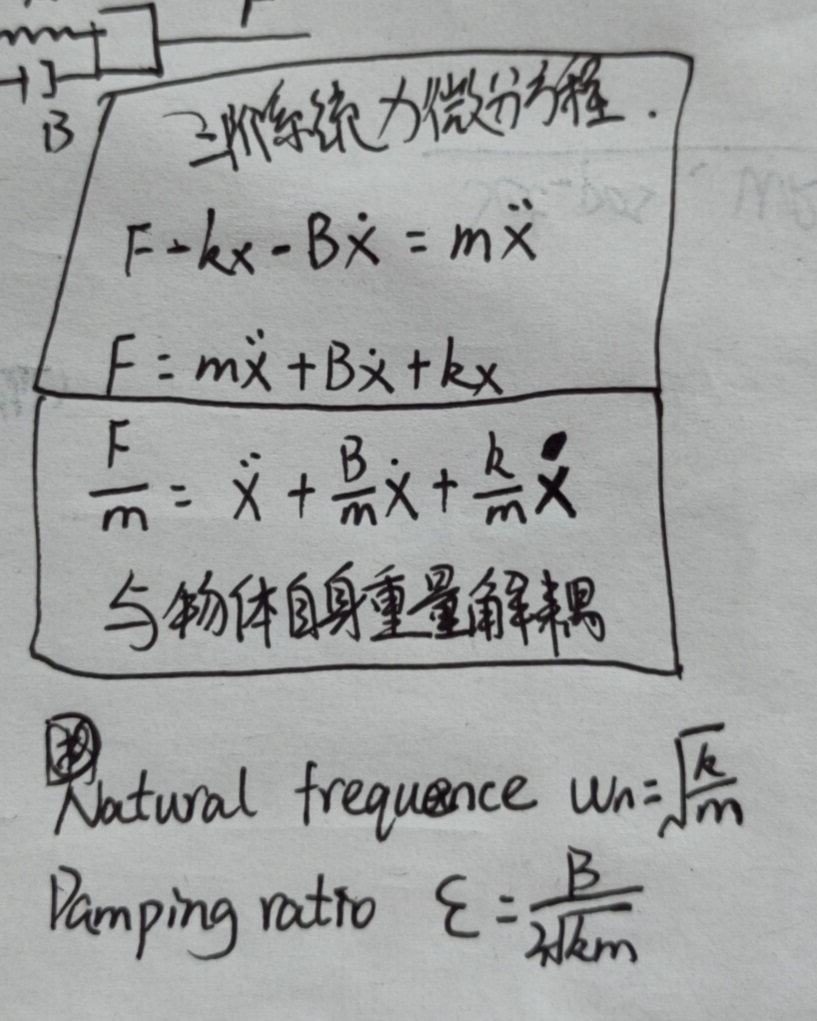 B
二阶系统力微分方程.
F - kx - Bẋ = mẍ
F = mẍ + Bẋ + kx
F/m = ẍ + B/m ẋ + k/m x
与物体自身重量解耦
Natural frequence ωn = √(k/m)
Damping ratio ξ = B/(2√km)